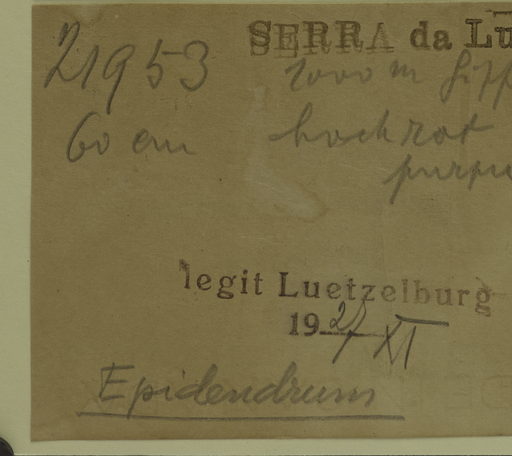 21953 SERRA da Lu
1000 m
60 cm hochrot
purpu
legit Luetzelburg
1927 XI
Epidendrum